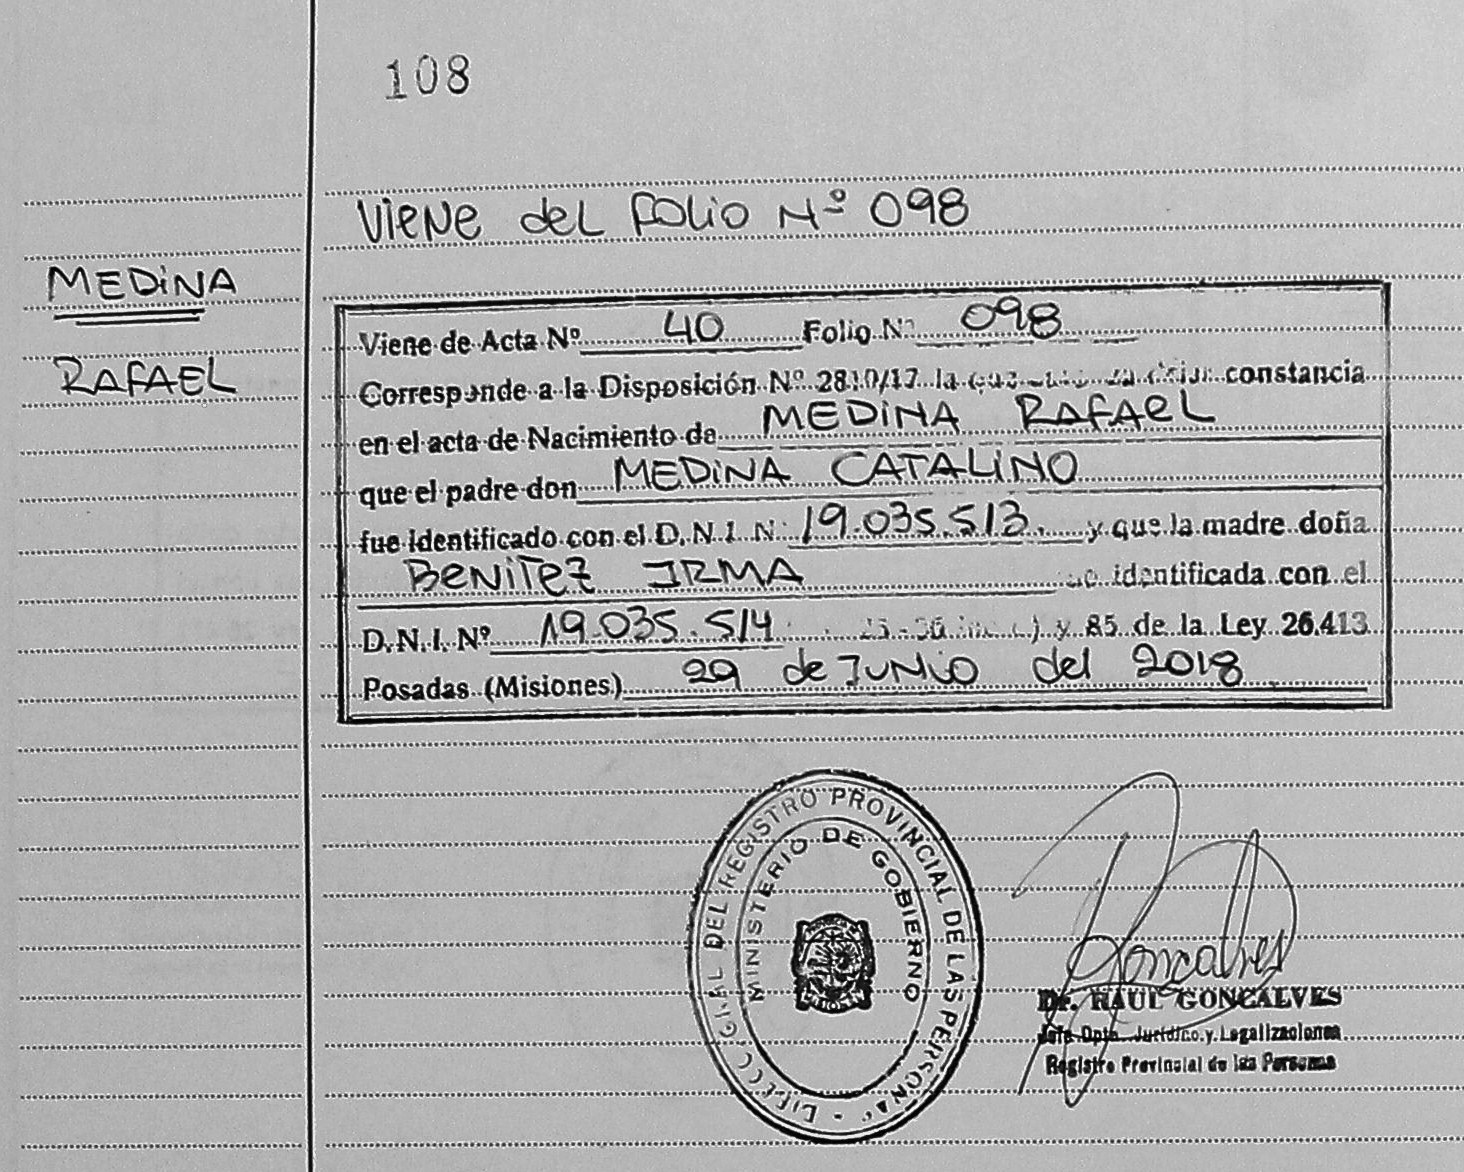 108
Viene del Folio Nº 098
MEDINA
RAFAEL
Viene de Acta Nº 40 Folio Nº 098
Corresponde a la Disposición Nº 2810/17 la que constancia
en el acta de Nacimiento de MEDINA RAFAEL
que el padre don MEDINA CATALINO
fue identificado con el D.N.I. N: 19.035.513. y que la madre doña
BENITEZ IRMA identificada con el
D.N.I. Nº 19.035.514 y 85 de la Ley 26.413
Posadas (Misiones) 29 de JUNIO del 2018
DEL REGISTRO PROVINCIAL DE LAS PERSONAS
MINISTERIO DE GOBIERNO
Goncalves
Dr. RAUL GONCALVES
Jefe Dpto. Jurídico y Legalizaciones
Registro Provincial de las Personas